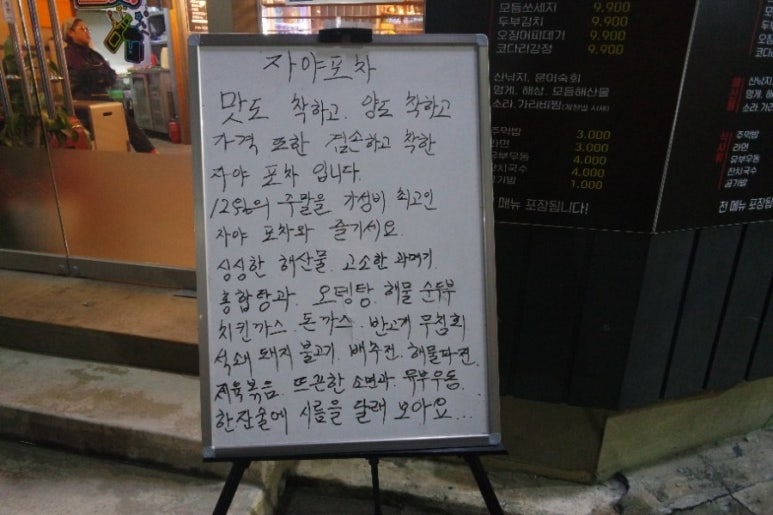 자야포차
맛도 착하고. 양도 착하고
가격 또한 겸손하고 착한
자야 포차 입니다.
12월의 주말을 가성비 최고인
자야 포차와 즐기세요.
싱싱한 해산물. 고소한 과메기.
홍합탕과. 오뎅탕. 해물 순두부
치킨까스. 돈까스. 반고개 무침회
석쇠 돼지 불고기. 배추전. 해물파전.
제육볶음. 뜨끈한 소면과 유부우동.
한잔술에 시름을 달래 보아요...
모듬쏘세지 9,900
두부김치 9,900
오징어찌데기 9,900
코다리강정 9,900
산낙지, 문어숙회
멍게, 해삼, 모듬해산물
소라, 가리비찜(계절별 시세)
주먹밥 3,000
라면 3,000
유부우동 4,000
잔치국수 4,000
공기밥 1,000
메뉴 포장됩니다!
모듬
두부
오징
코다
해산물
산낙
멍게,
소라,
식사류
주먹밥
라면
유부우동
잔치국수
공기밥
전 메뉴 포장됩